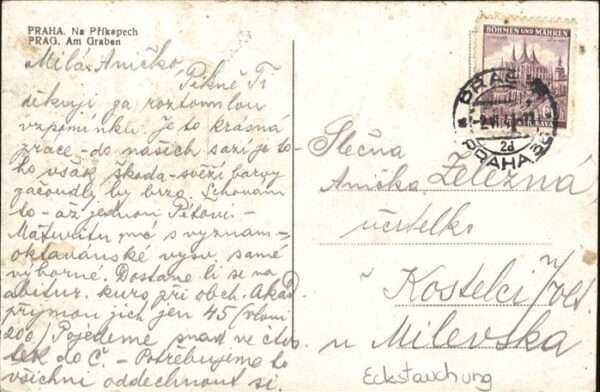 PRAHA. Na Příkopech
PRAG. Am Graben
Milá Aničko,
Pěkně Ti
děkuji za roztomilou
vzpomínku. Je to krásná
práce - do našich sazí je to-
ho však škoda - svěží barvy
začoudily by brzo. Schovám
to - až jednou
Maturitu má s vyznam.-
oktavánské vysv. samé
výborné. Dostane li se na
abitur. kurs při obch. Akad.
přijmou jich jen 45 /vloni
200/ Pojedeme snad ve čtvr
tek do Č. - Potřebujeme to
všichni oddechnout si.
BÖHMEN UND MÄHREN
PRAG
PRAHA
2d
Slečna
Anička Železná,
učitelka
v Kostelci n/Vlt.
u Milevska
Eckstauchung